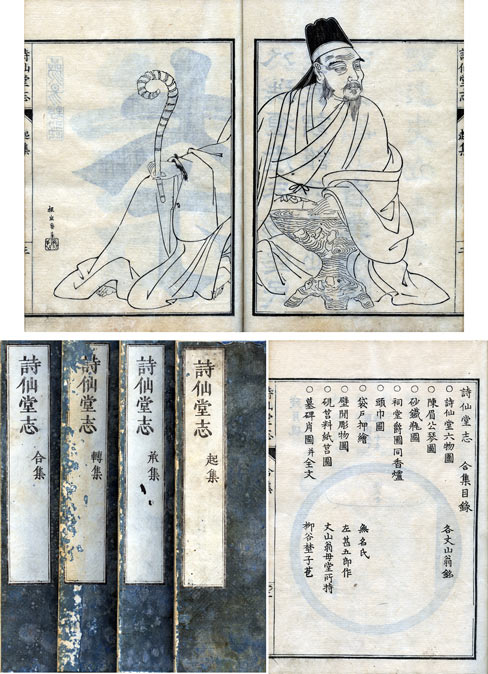 詩仙堂志 起集
詩仙堂志 起集
詩仙堂志 起集
詩仙堂志 承集
詩仙堂志 轉集
詩仙堂志 合集
詩仙堂志 合集目錄
○詩仙堂六物圖 各丈山翁銘
○陳眉公琴圖
○砂鑵瓶圖
○祠堂爵圖同香爐
○頭巾圖
○袋戸押繪 無名氏
○壁間彫物圖 左甚五郎作
○硯筥料紙筥圖 丈山翁母堂所持
○墓碑肖圖并全文 柳谷埜子苞
詩仙堂志 合集